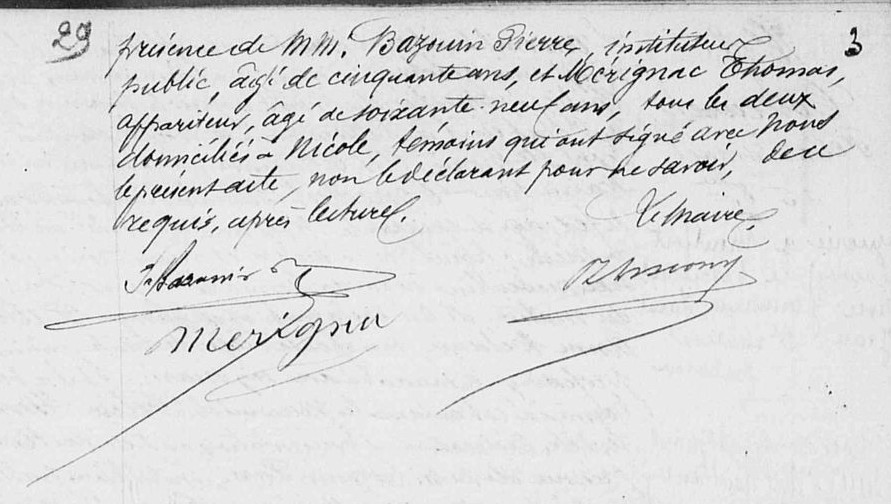 29
3
présence de MM. Bazouin Pierre, instituteur
public, âgé de cinquante ans, et Mérignac Thomas,
appariteur, âgé de soixante-neuf ans, tous les deux
domiciliés à Nicole, témoins qui ont signé avec Nous
le présent acte, non le déclarant pour ne savoir, de ce
requis, après lecture.
Le Maire,
Merignac